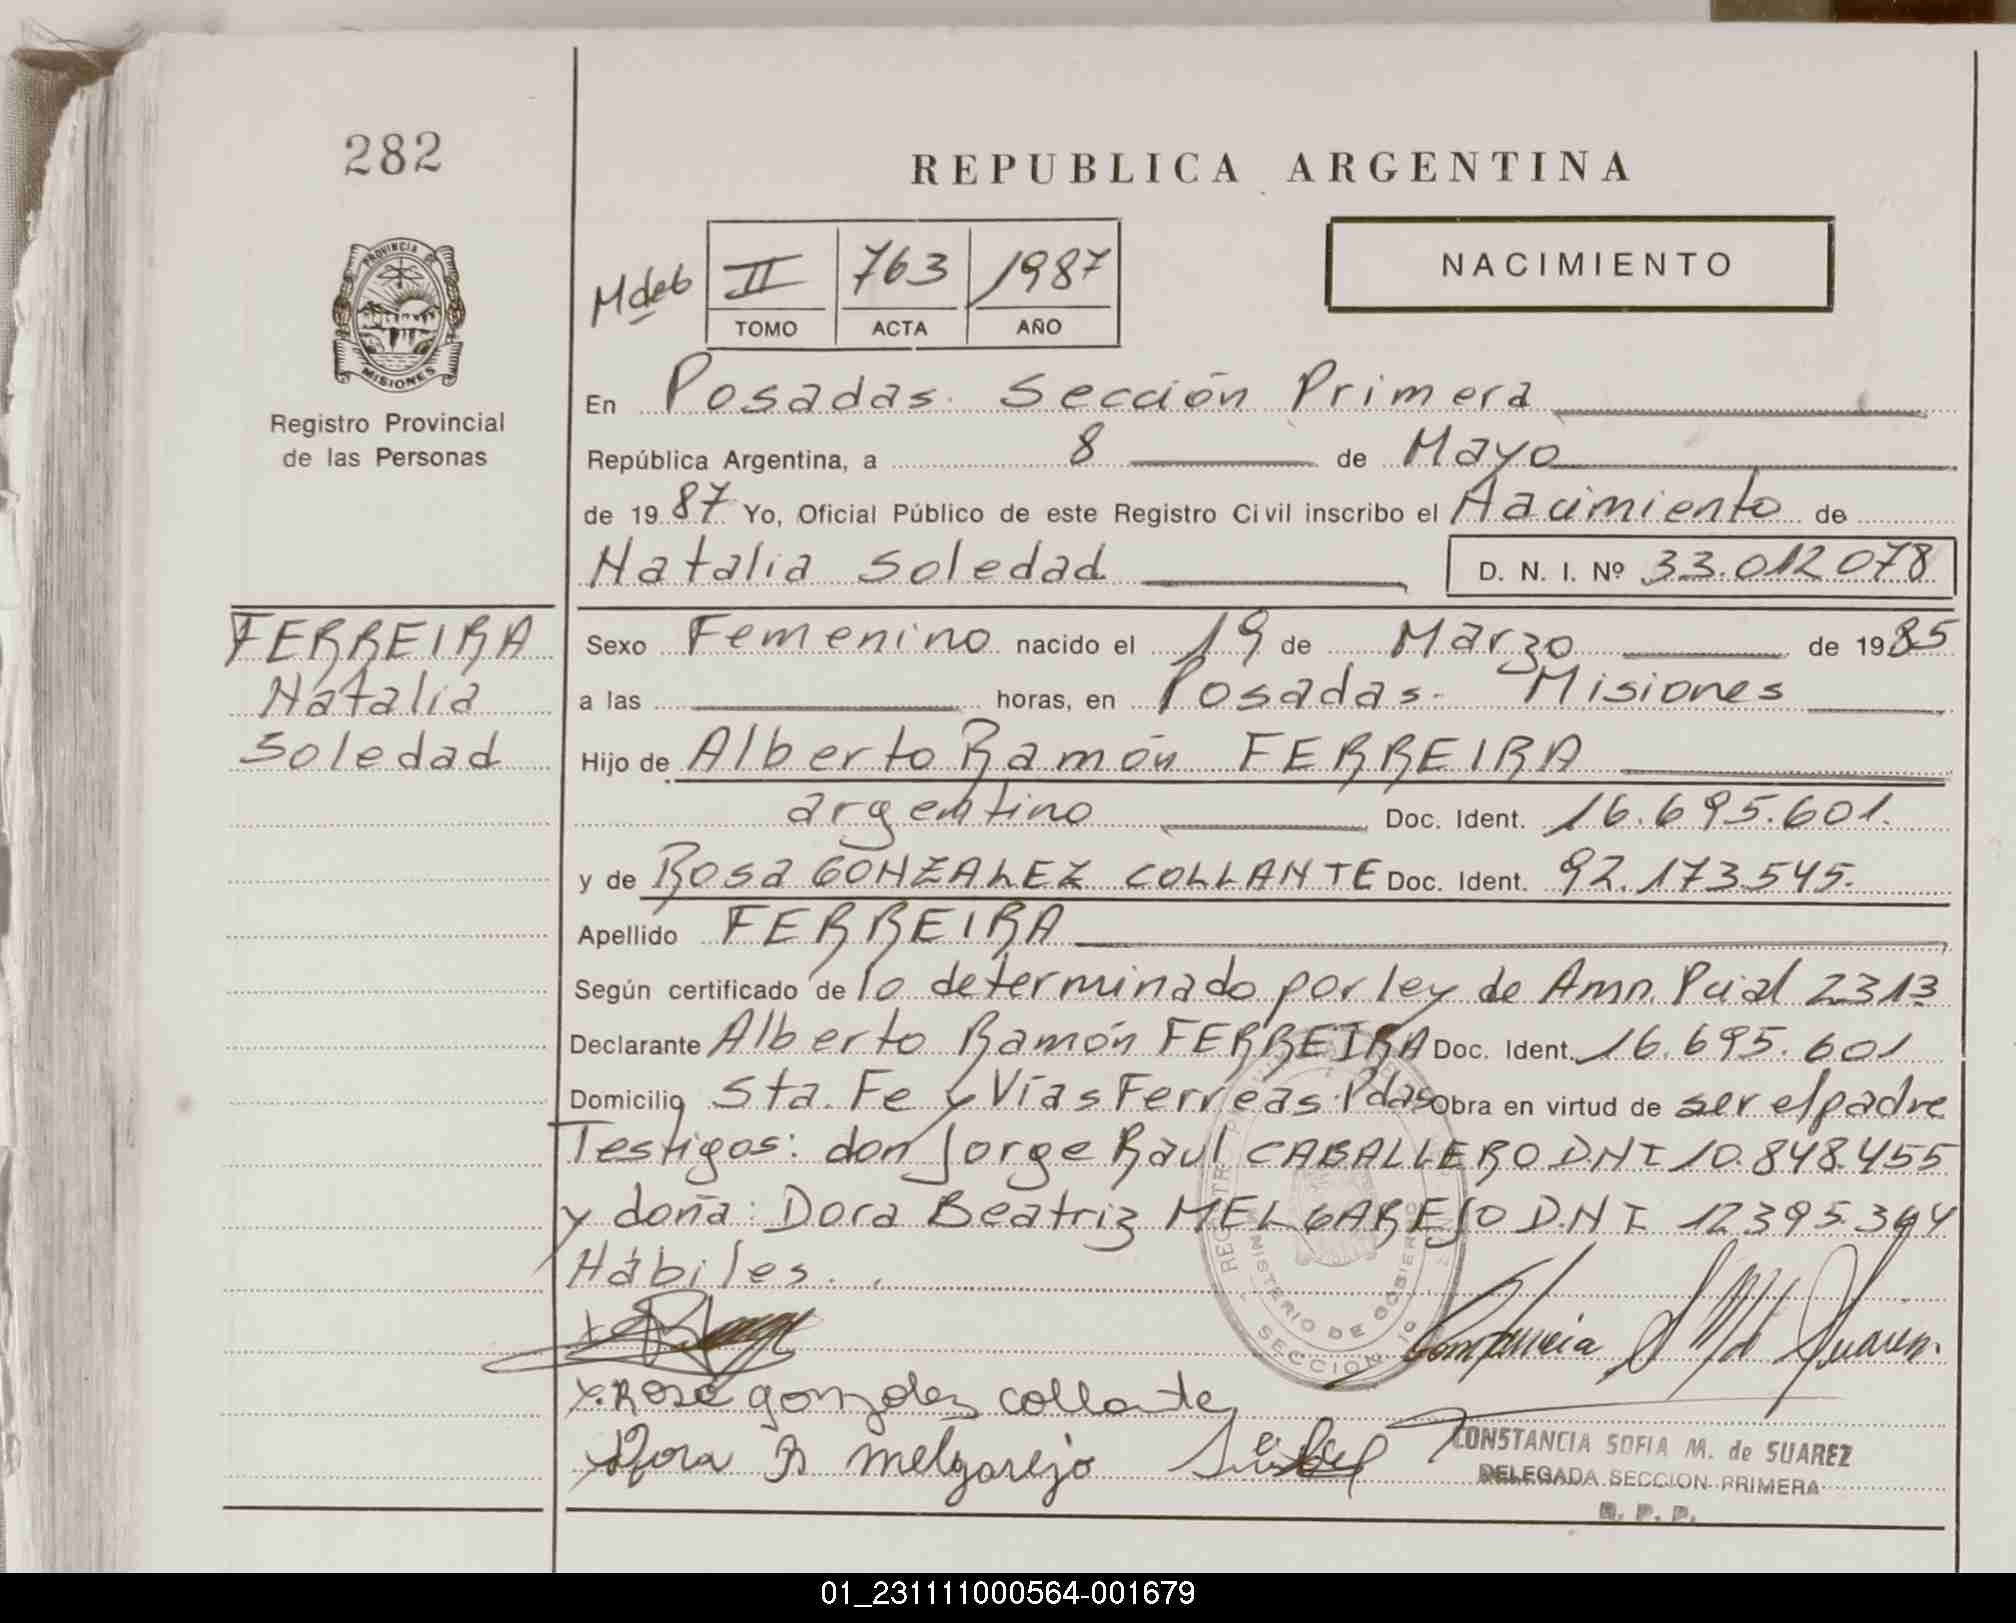 282
REPUBLICA ARGENTINA
NACIMIENTO
II 763 1987
TOMO ACTA AÑO
PROVINCIA
MISIONES
Registro Provincial
de las Personas
En Posadas. Sección Primera
República Argentina, a 8 de Mayo
de 1987 Yo, Oficial Público de este Registro Civil inscribo el Nacimiento de
Natalia Soledad D. N. I. Nº 33.012078
FERREIRA
Natalia
Soledad
Sexo Femenino nacido el 19 de Marzo de 1985
a las horas, en Posadas- Misiones
Hijo de Alberto Ramón FERREIRA
argentino Doc. Ident. 16.695.601.
y de Rosa GONZALEZ COLLANTE Doc. Ident. 92.173.545.
Apellido FERREIRA
Según certificado de lo determinado por ley de Amn. Pcial 2313
Declarante Alberto Ramón FERREIRA Doc. Ident. 16.695.601
Domicilio Sta. Fe y Vías Ferreas. Pdas Obra en virtud de ser el padre
Testigos: don Jorge Raul CABALLERO D.N.I 10.848.455
y doña: Dora Beatriz MELGAREJO D.N.I. 12.395.344
Hábiles..
MINISTERIO DE GOBIERNO
SECCION
Constancia S M de Suárez.
x. Rosa gonzalez collante
x Dora B melgarejo
CONSTANCIA SOFIA M. de SUAREZ
DELEGADA SECCION PRIMERA
R. P. P.
01_231111000564-001679